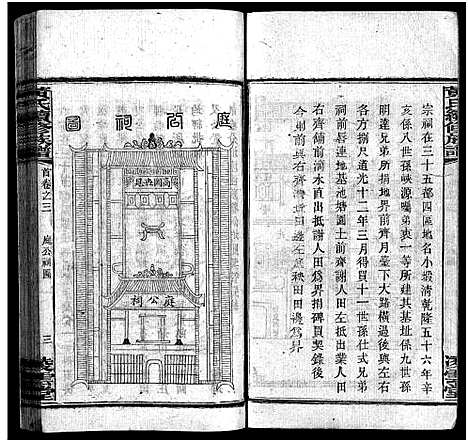 宗祠在三十五都四區地名小塅清乾隆五十六年辛
亥係八世孫映源曙弟衷一等所建其基址係九世孫
開達兄弟所捐地界前齊月臺下大路橫過左右與後
各方捌尺道光十二年三月得買十一世孫仕式兄弟
祠前毗連地基池塘園土前齊謝人田左抵出業人田
右齊舖前滴水直出抵謝人田為界捐碑買契錄後
今則前與右齊灣坵田秧田田邊為界
庭公祠圖
庭公祠
黃氏續修族譜
首卷之三
庭公祠圖
三
黃氏續修族譜